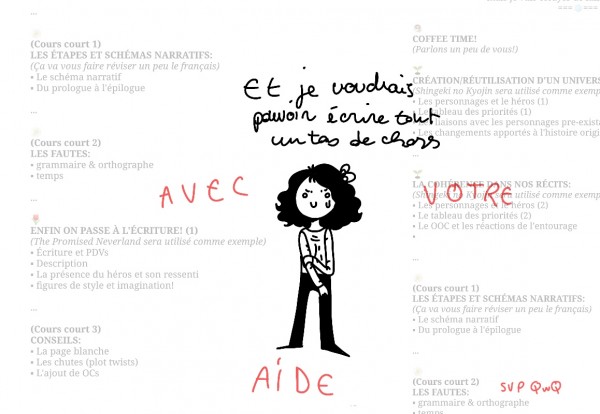 ===
...
(Cours court 1)
LES ÉTAPES ET SCHÉMAS NARRATIFS:
(Ça va vous faire réviser un peu le français)
• Le schéma narratif
• Du prologue à l'épilogue
...
(Cours court 2)
LES FAUTES:
• grammaire & orthographe
• temps
...
ENFIN ON PASSE À L'ÉCRITURE! (1)
(The Promised Neverland sera utilisé comme exemple)
• Écriture et PDVs
• Description
• La présence du héros et son ressenti
• figures de style et imagination!
...
(Cours court 3)
CONSEILS:
• La page blanche
• Les chutes (plot twists)
• L'ajout de OCs
Et je voudrais
pouvoir écrire tout
un tas de choses
AVEC
VOTRE
AIDE
COFFEE TIME!
(Parlons un peu de vous!)
...
CRÉATION/RÉUTILISATION D'UN UNIVERS
(Shingeki no Kyojin sera utilisé comme exemple
• Les personnages et le héros (1)
• Le tableau des priorités (1)
liaisons avec les personnages
• Les changements apportés à l'histoire
...
LA COHÉRENCE DANS NOS RÉCITS:
(Shingeki no Kyojin sera utilisé comme exemple
• Les personnages et le héros (2)
• Le tableau des priorités (2)
• Le OOC et les réactions de l'entourage
•
...
(Cours court 1)
LES ÉTAPES ET SCHÉMAS NARRATIFS:
(Ça va vous faire réviser un peu le français)
• Le schéma narratif
• Du prologue à l'épilogue
...
(Cours court 2)
LES FAUTES:
• grammaire & orthographe
• temps
SVP QwQ